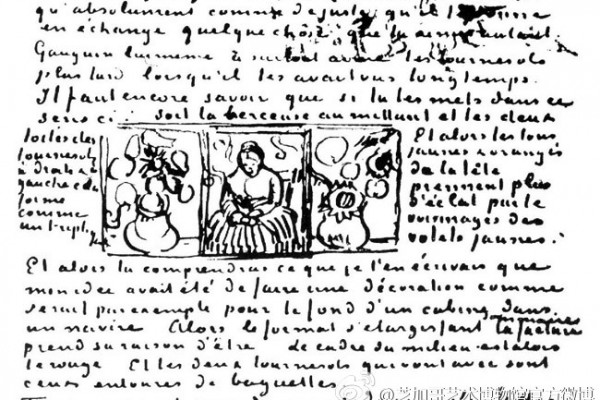 qu'absolument comme de juste qu'il te donne
en échange quelque chose que tu aimes autant.
Gauguin lui même a surtout aimé les tournesols
plus tard lorsqu'il les avait vus longtemps.
Il faut encore savoir que si tu les mets dans ce
sens ci: soit la berceuse au milieu et les deux
toiles des
tournesols
à droite &
gauche cela
forme
comme
un triptyque
Et alors les tons
jaunes & orangés
de la tête
prennent plus
d'éclat par le
voisinages des
volets jaunes.
Et alors tu comprendras ce que je t'en écrivais que
mon idée avait été de faire une décoration comme
serait par exemple pour le fond d'un cabine dans
un navire Alors le format s'élargissant la facture
sommaire
prend sa raison d'être Le cadre du milieu est alors
le rouge. Et les deux tournesols qui vont avec sont
ceux entourés de baguettes
@芝加哥艺术博物馆官方微博